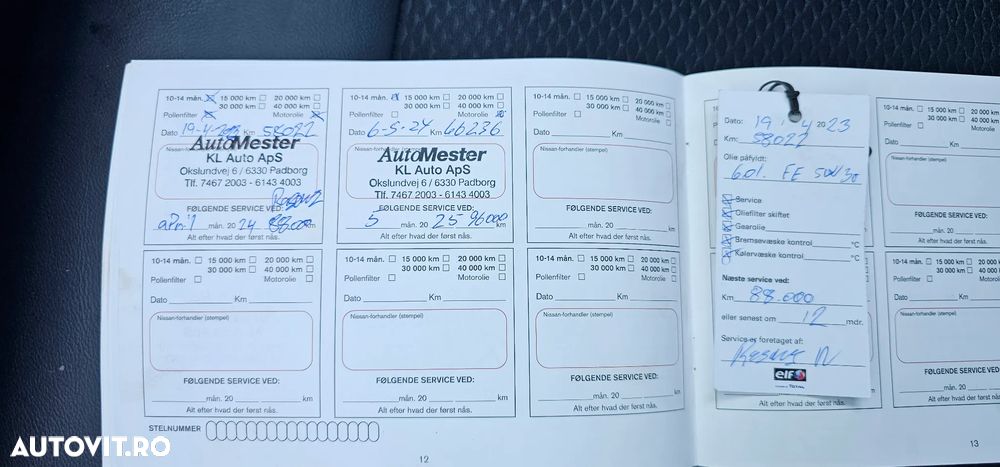 10-14 mån. ☒ 15 000 km ☐ 20 000 km ☐
30 000 km ☐ 40 000 km ☐
Pollenfilter ☒ Motorolie ☒
Dato 19-4- Km 58022
Nissan-forhandler (stempel)
AutoMester
KL Auto ApS
Okslundvej 6 / 6330 Padborg
Tlf. 7467 2003 - 6143 4003
FØLGENDE SERVICE VED:
april mån. 20 24 88.000 km
Alt efter hvad der først nås.
10-14 mån. ☒ 15 000 km ☐ 20 000 km ☐
30 000 km ☐ 40 000 km ☐
Pollenfilter ☐ Motorolie ☒
Dato 6-5-24 Km 66236
Nissan-forhandler (stempel)
AutoMester
KL Auto ApS
Okslundvej 6 / 6330 Padborg
Tlf. 7467 2003 - 6143 4003
FØLGENDE SERVICE VED:
5 mån. 20 25 96000
Alt efter hvad der først nås.
10-14 mån. ☐ 15 000 km ☐ 20 000 km ☐
30 000 km ☐ 40 000 km ☐
Pollenfilter ☐ Motorolie ☐
Dato Km
Nissan-forhandler (stempel)
FØLGENDE SERVICE VED:
mån. 20 km
Alt efter hvad der først nås.
10-14 mån. ☐ 15 000 km ☐ 20 000 km ☐
30 000 km ☐ 40 000 km ☐
Pollenfilter ☐ Motorolie ☐
Dato Km
Nissan-forhandler (stempel)
FØLGENDE SERVICE VED:
mån. 20 km
Alt efter hvad der først nås.
10-14 mån. ☐ 15 000 km ☐ 20 000 km ☐
30 000 km ☐ 40 000 km ☐
Pollenfilter ☐ Motorolie ☐
Dato Km
Nissan-forhandler (stempel)
FØLGENDE SERVICE VED:
mån. 20 km
Alt efter hvad der først nås.
10-14 mån. ☐ 15 000 km ☐ 20 000 km ☐
30 000 km ☐ 40 000 km ☐
Pollenfilter ☐ Motorolie ☐
Dato Km
Nissan-forhandler (stempel)
FØLGENDE SERVICE VED:
mån. 20 km
Alt efter hvad der først nås.
STELNUMMER
12
Dato: 19 4 2023
Km: 58022
Olie påfyldt:
5W30
Service
Oliefilter skiftet
Gearolie
Bremsevæske kontrol °C
Kølervæske kontrol °C
Næste service ved:
Km 88.000
eller senest om 12 mdr.
Service er foretaget af:
elf
TOTAL
10-14 mån. ☐ 15 000 km ☐ 20 000
30 000 km ☐ 40 000
Pollenfilter ☐ Motorolie
Dato Km
Nissan-forhandler (stempel)
FØLGENDE SERVICE VED:
mån. 20
Alt efter hvad der først nås.
10-14 mån. ☐ 15 000 km ☐ 20 000
30 000 km ☐ 40 000
Pollenfilter ☐ Motorolie
Dato Km
Nissan-forhandler (stempel)
FØLGENDE SERVICE VED:
mån. 20
Alt efter hvad der først nås.
13
AUTOVIT.RO